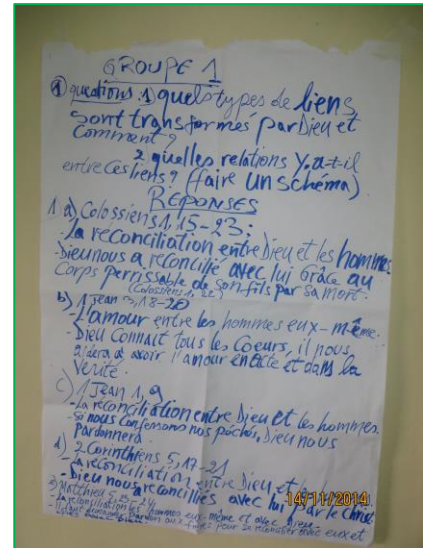 GROUPE 1
① questions: 1) quels types de liens
sont transformés par Dieu et
Comment?
2 quelles relations Y.a-t-il
entre ces liens? (faire un schéma)
REPONSES
1) a) Colossiens 1, 15-23:
- la réconciliation entre Dieu et les hommes.
- Dieu nous a réconcilié avec lui Grâce au
Corps perrissable de son fils par sa mort.
(Colossiens 1, 22)
b) 1 Jean 3, 18-20
- L'amour entre les hommes eux-même.
- Dieu Connait tous les Coeurs, il nous
aidera à avoir l'amour en acte et dans la
verité.
c) 1 Jean 1, 9
- La réconciliation entre Dieu et les hommes
- Si nous Confessons nos péchés, Dieu nous
pardonnera.
d) 2 Corinthiens 5, 17-21
- La réconciliation entre Dieu et les
- Dieu nous a réconciliés avec lui par le Christ.
Matthieu 5, 23-24
- La réconciliation les hommes eux-même et avec Dieu.
pardon aux pour se réconcilier avec eux et
14/11/2014